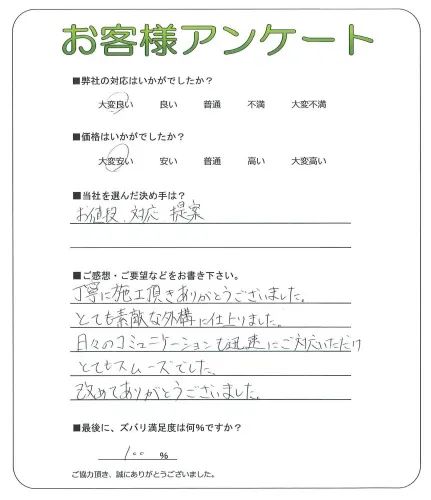 お客様アンケート
■弊社の対応はいかがでしたか？
大変良い 良い 普通 不満 大変不満
■価格はいかがでしたか？
大変安い 安い 普通 高い 大変高い
■当社を選んだ決め手は？
お値段、対応 提案
■ご感想・ご要望などをお書き下さい。
丁寧に施工頂きありがとうございました。
とても素敵な外構に仕上りました。
日々のコミュニケーションも迅速にご対応いただけ
とてもスムーズでした。
改めてありがとうございました。
■最後に、ズバリ満足度は何％ですか？
100 ％
ご協力頂き、誠にありがとうございました。